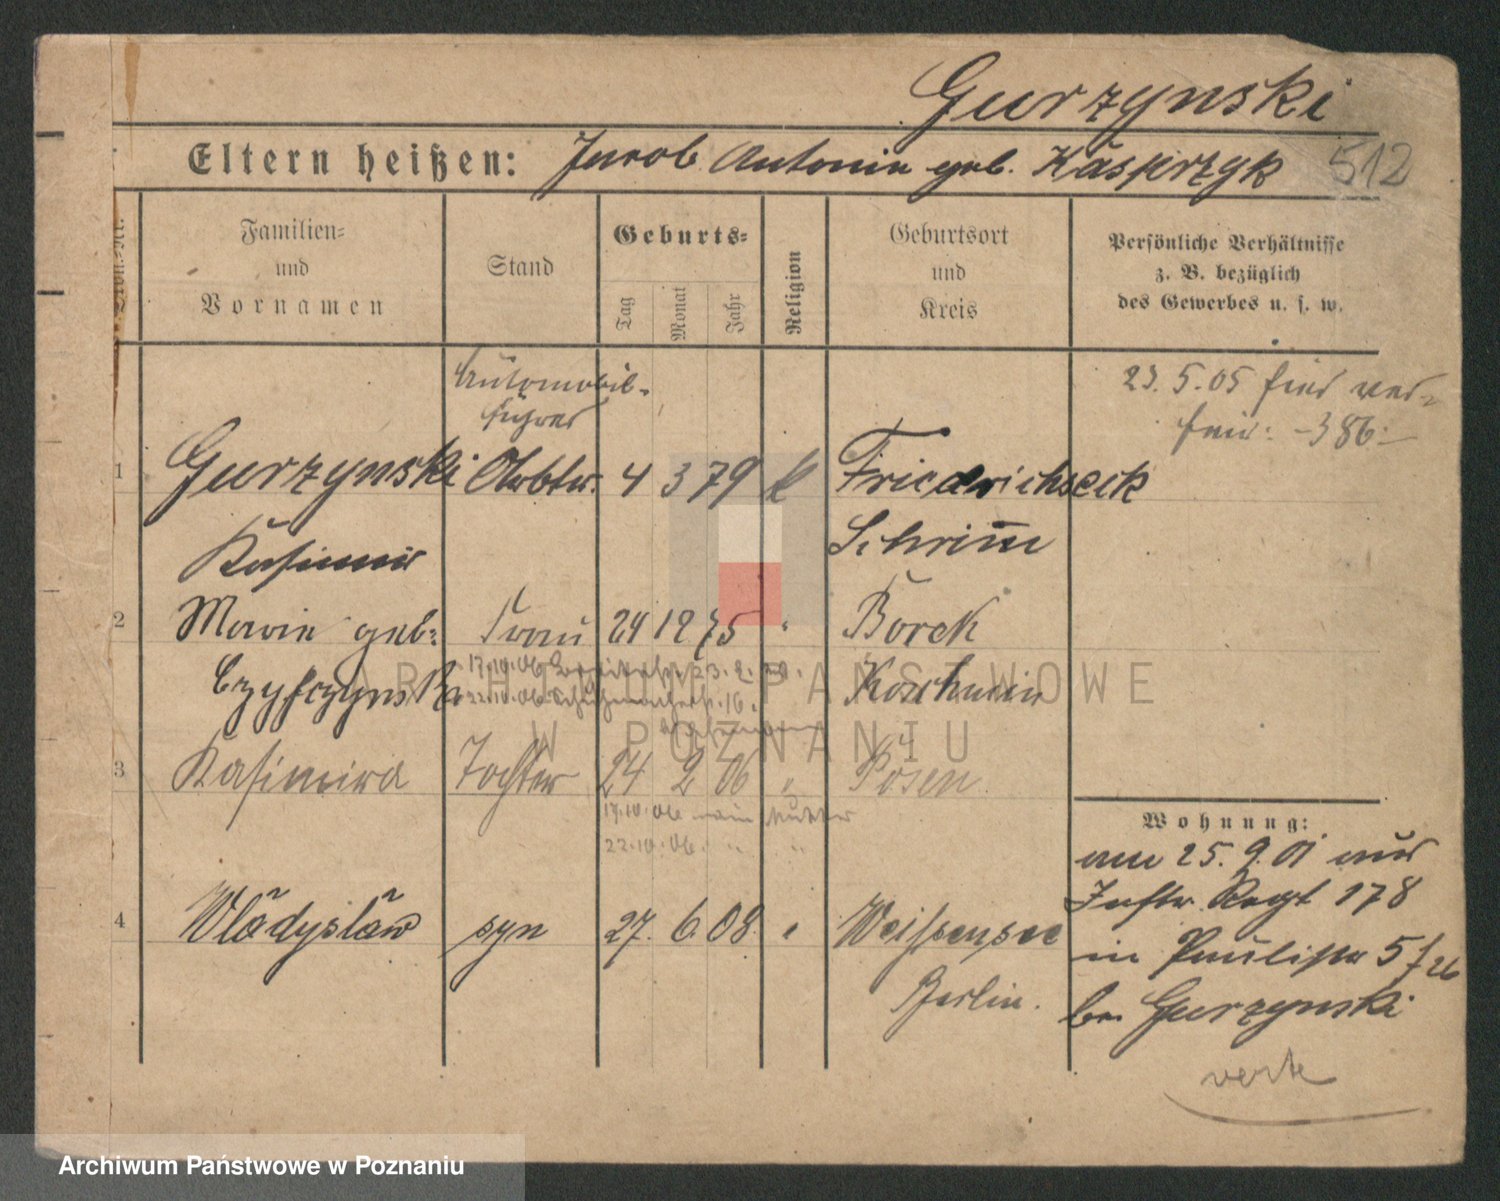 Gurzynski
Eltern heißen: Jacob Antonie geb. Kasprzyk 512
Familien-
und
Vornamen
Stand
Geburts-
Tag
Monat
Jahr
Religion
Geburtsort
und
Kreis
Persönliche Verhältnisse
z. B. bezüglich
des Gewerbes u. s. w.
Automobil-
führer
23. 5. 05 hier
386
1 Gurzynski 4 3 79 k Friedrichseck
Kasimir Schrimm
2 Marie geb. Frau 24 12 75 " Borek
Koschmin
17.10.06 23.2.
22.10.06 16.
3 Kasimira Tochter 24 2 06 " Posen
17.10.06 Mutter
22.10.06 " "
4 Wladyslaw syn 27. 6. 08. " Weissensee
Berlin.
Wohnung:
am 25. 9. 01 aus
Inftr. Regt 178
in 5
bei Gurzynski
verte
ARCHIWUM PAŃSTWOWE
W POZNANIU
Archiwum Państwowe w Poznaniu